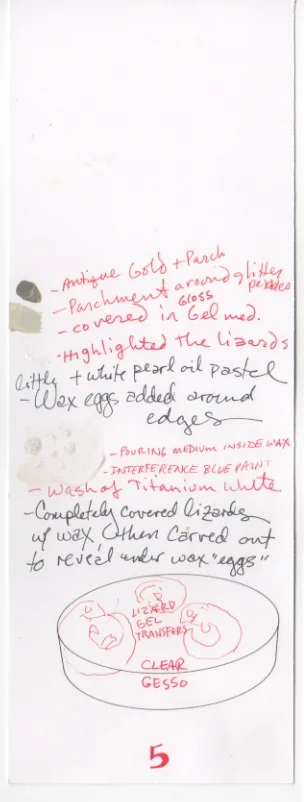 - Antique Gold + Parch
- Parchment around glitter pebbles
- covered in Gloss Gel med.
- Highlighted the lizards
+ white pearl oil pastel
- Wax eggs added around
edges
- POURING MEDIUM INSIDE WAX
- INTERFERENCE BLUE PAINT
- Wash of Titanium White
- Completely covered lizards
w/ wax then carved out
to reveal under wax "eggs"
LIZARD
GEL
TRANSFERS
CLEAR
GESSO
5